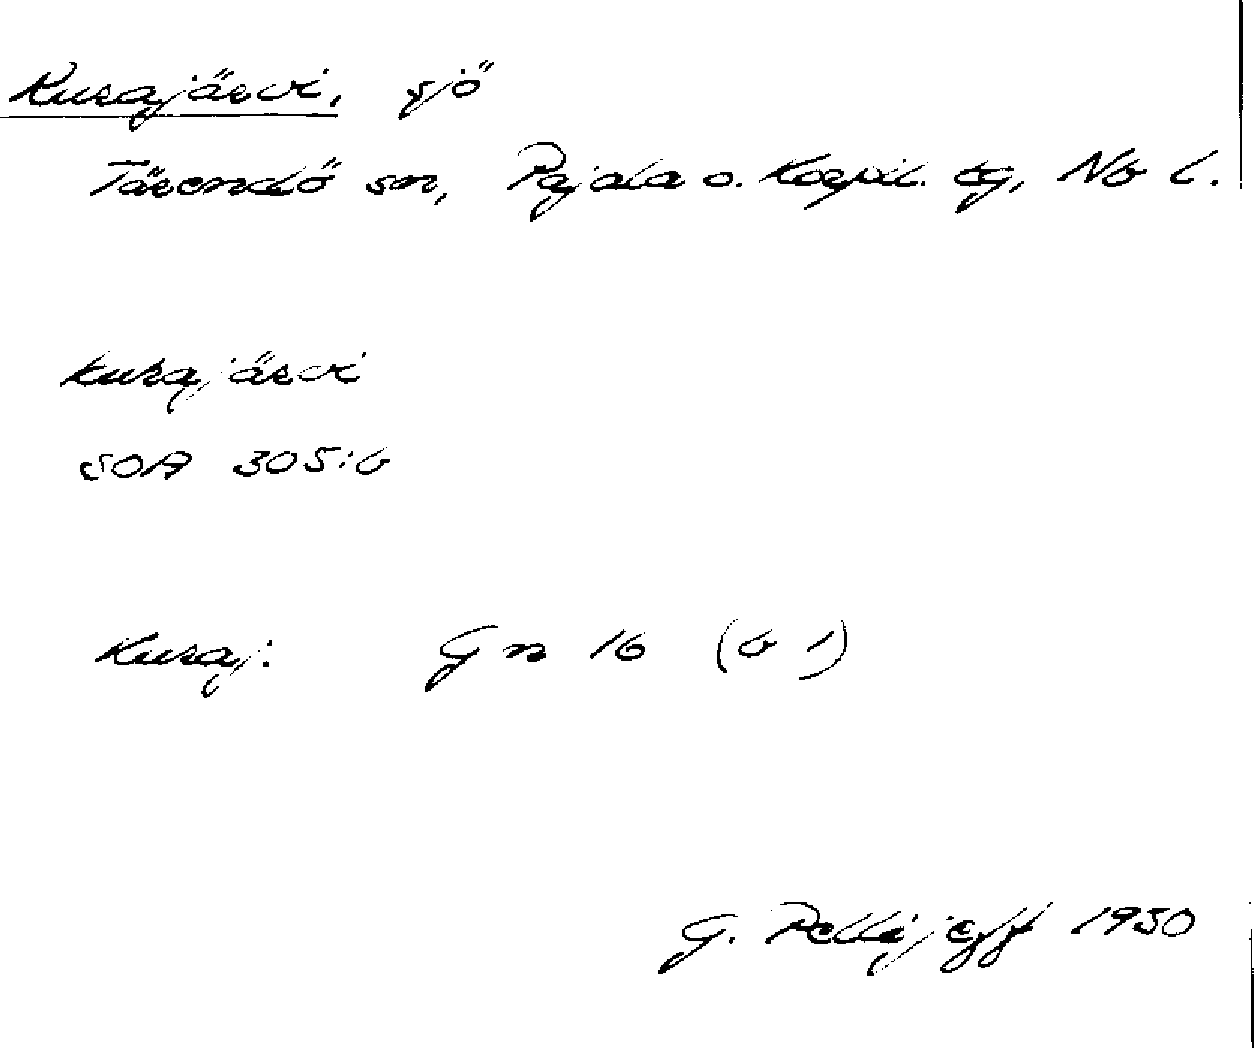 Kurajärvi, sjö
Tärendö sn, Pajala o. Korpil. tg, Nb l.
kurajärvi
SOA 305:6
Kuraj: Gn 16 (b 1)
G. Pellijeff 1950